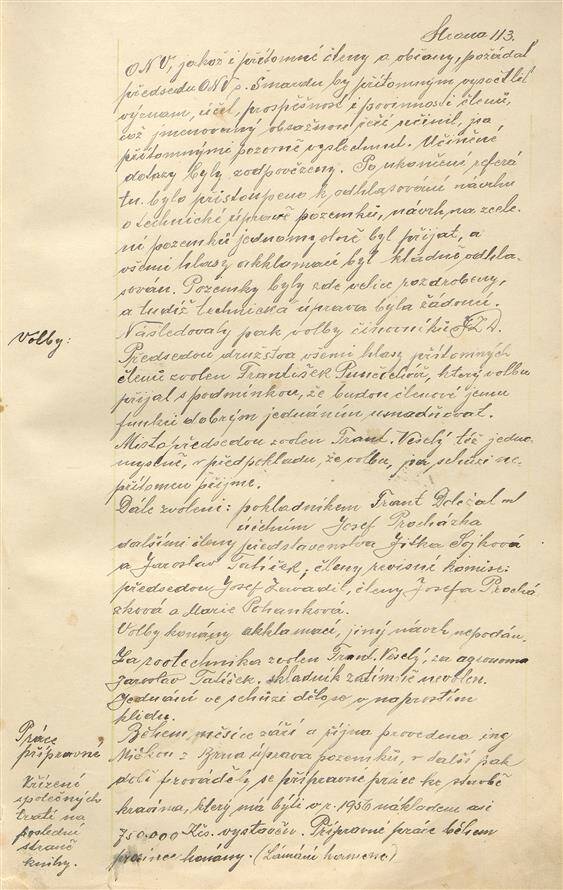 Strana 113.
ONV, jakož i přítomné členy a občany, požádal
předsedu ONV s. Šmardu by přítomným vysvětlil
význam, účel, prospěšnost i povinnosti členů,
což jmenovaný obsažnou řečí učinil, jsa
přítomnými pozorně vyslechnut. Učiněné
dotazy byly zodpovězeny. Po ukončení referá
tu bylo přistoupeno k odhlasování návrhu
o technické úpravě pozemků, návrh na scele-
ní pozemků jednomyslně byl přijat, a
všemi hlasy akklamací byl kladně odhla-
sován. Pozemky byly zde velice rozdrobeny,
a tudíž technická úprava byla žádoucí.
Volby:
Následovaly pak volby činovníků JZD.
Předsedou družstva všemi hlasy přítomných
členů zvolen František Punčochář, který volbu
přijal s podmínkou, že budou členové jemu
funkci dobrým jednáním usnadňovat.
Místopředsedou zvolen Frant. Veselý též jedno-
myslně, v předpokladu, že volbu, jsa schůzi ne-
přítomen přijme.
Dále zvoleni: pokladníkem Frant Doležal ml
účetním Josef Procházka
dalšími členy představenstva Jitka Sojková
a Jaroslav Tatíček; členy revisní komise:
předsedou Josef Zavadil, členy Josefa Prochá
zková a Marie Pohanková.
Volby konány akklamací, jiný návrh nepodán.
Za zootechnika zvolen Frant. Veselý, za agronoma
Jaroslav Tatíček. skladník zatímně nevolen.
Jednání ve schůzi dělo se v naprostím
klidu.
Práce
přípravné
Během měsíce září a října provedena ing
Mičkou z Brna úprava pozemků, v další pak
době prováděly se přípravné práce ke stavbě
kravína, který má býti v r. 1956 nákladem asi
750.000 Kčs. vystavěn. Přípravné práce během
prosince konány. (Lámání kamene)
Křížení
společných
tratí na
poslední
straně
knihy.